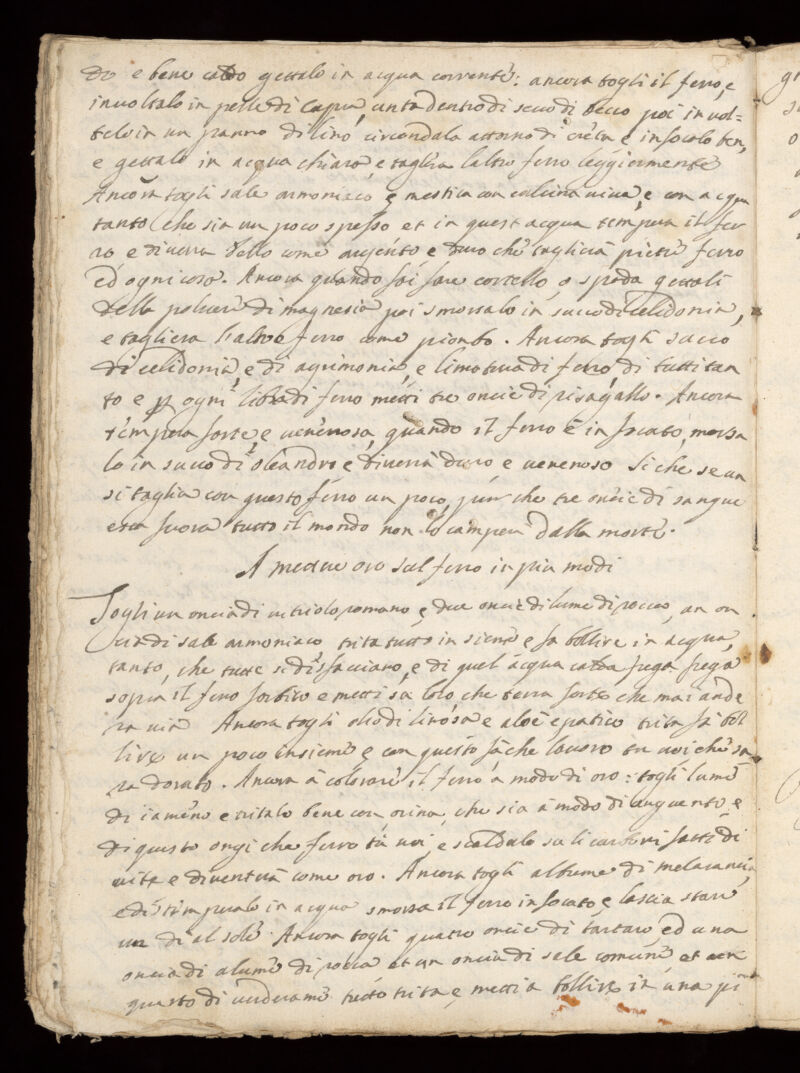 do e bene caldo gettalo in acqua corrente: ancora togli il ferro, e
involtalo in pelle di capra, unta dentro di seuo di becco poi invol=
telo in un panno di lino circondalo attorno di creta e infocalo ben,
e gettalo in acqua chiara, e taglia laltro ferro leggiermente
Ancora togli sale armoniaco, e mestica con calcina viua, e con acqua
tanto che sia un poco spesso et in quest acqua tempera il fer
ro, e diuerra bello come argento, e duro che tagliera pietre ferro
ed ogni cosa. Ancora quando fai fare cortello, o spada gettali
della poluere di magnesia poi smorzalo in succo di Celidonia,
e tagliera l'altro ferro come piombo. Ancora togli succo
di celidonia, e di agrimonia, e limatura di ferro, di tutti tan
to e p ogni libra di ferro metti tre oncie di risagallo. Ancora
tempera forte, e uenenosa, quando il ferro è infocato, morza
lo in succo di oleandro, e diuerra duro e uenenoso si che se un
si taglia con questo ferro un poco, pur che tre oncie di sangue
esca fuora tutto il mondo non lo campera dalla morte.
A mettere oro sul ferro in piu modi
Togli un oncia di uitriolo romano, e due oncie di lume di rocco, un on
cia di sale armoniaco trita tutto insieme e fa bollire in acqua,
tanto, che tutte si disfacciano, e di quel acqua calda frega frega
sopra il ferro forbito e metti su loro che terra forte che mai ande
ra uia Ancora togli olio di linosa e aloe epatico trita fa bol
lire un poco insieme e con questo fa che lauoro tu uoi che sa
ra dorato. Ancora a colorare il ferro a modo di oro: togli lume
di iameno e tritalo bene con orina, che sia a modo di unguento, e
di questo ongi che ferro tu uoi, e scaldalo su li carboni fatti di
uite e diuentera come oro. Ancora togli albume di melarancia,
e distemperalo in acqua smorza il ferro infocato, e lascia stare
un di al sole. Ancora togli quatro oncie di tartaro, ed una
oncia di alume di rocca et un oncia di sale comune, et
questo di uerderame tutto trita e, metti a bollire in una